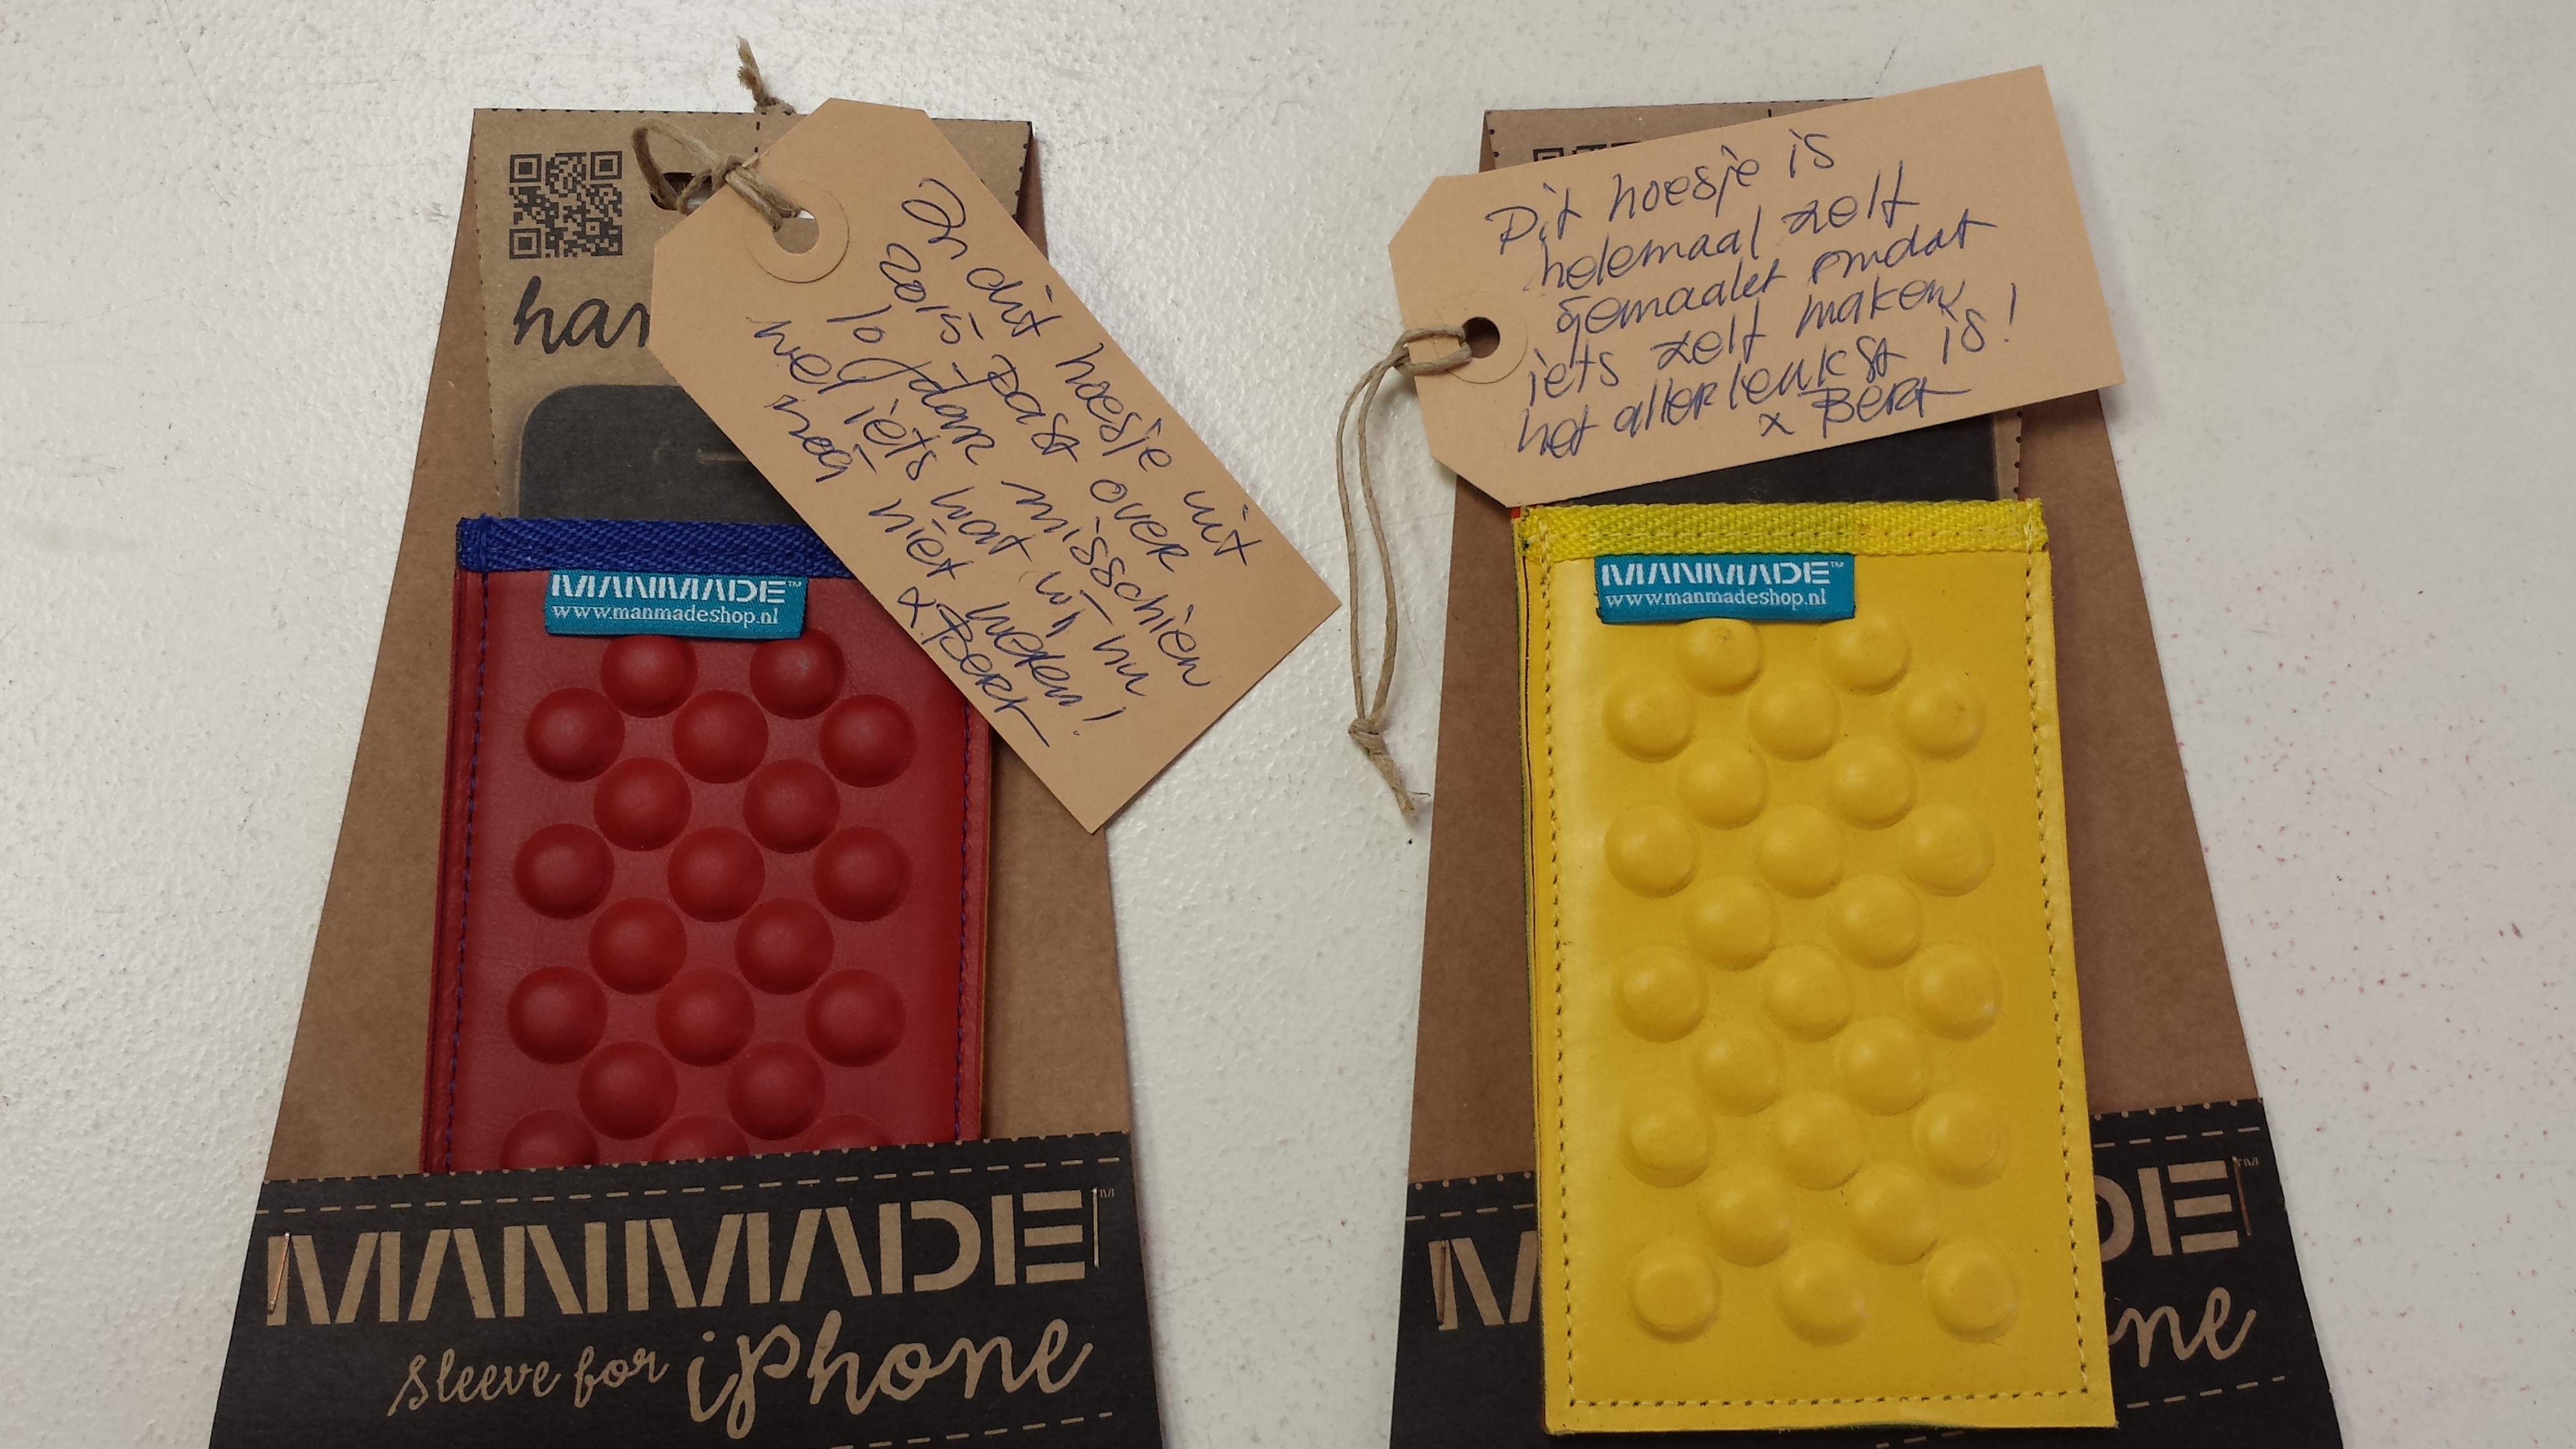 In dit hoesje uit
2015 past over
10 jaar misschien
wel iets wat wij nu
nog niet weten!
x Bert
MANMADE™
www.manmadeshop.nl
MANMADE™
sleeve for iphone
Dit hoesje is
helemaal zelf
gemaakt omdat
iets zelf maken
het allerleukst is!
x Bert
MANMADE™
www.manmadeshop.nl